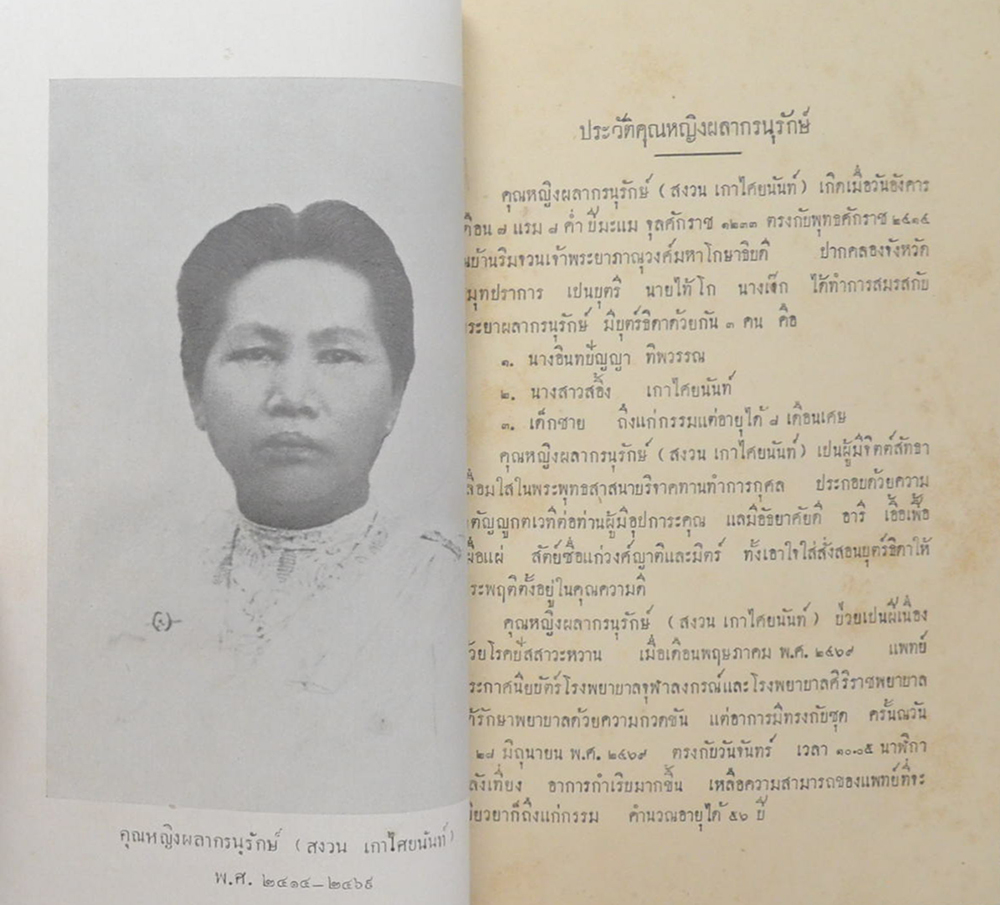 คุณหญิงผลากรนุรักษ์ (สงวน เกาไศยนันท์)
พ.ศ. ๒๔๑๔–๒๔๖๙
ประวัติคุณหญิงผลากรนุรักษ์
คุณหญิงผลากรนุรักษ์ (สงวน เกาไศยนันท์) เกิดเมื่อวันอังคาร
ดือน ๗ แรม ๘ ค่ำ ปีมะแม จุลศักราช ๑๒๓๓ ตรงกับพุทธศักราช ๒๔๑๔
บ้านริมจวนเจ้าพระยาภาณุวงศ์มหาโกษาธิบดี ปากคลองจังหวัด
มุทปราการ เปนบุตรี นายไท้โก นางเง็ก ได้ทำการสมรสกับ
ระยาผลากรนุรักษ์ มีบุตร์ธิดาด้วยกัน ๓ คน คือ
๑. นางอินทปัญญา ทิพวรรณ
๒. นางสาวสอิ้ง เกาไศยนันท์
๓. เด็กชาย ถึงแก่กรรมแต่อายุได้ ๘ เดือนเศษ
คุณหญิงผลากรนุรักษ์ (สงวน เกาไศยนันท์) เปนผู้มีจิตต์สัทธา
ลื่อมใสในพระพุทธสาสนาบริจาคทานทำการกุศล ประกอบด้วยความ
ตัญญูกตเวทีต่อท่านผู้มีอุปการะคุณ แลมีอัธยาศัยดี อารี เอื้อเฟื้อ
ผื่อแผ่ สัตย์ซื่อแก่วงศ์ญาติและมิตร์ ทั้งเอาใจใส่สั่งสอนบุตร์ธิดาให้
ระพฤติตั้งอยู่ในคุณความดี
คุณหญิงผลากรนุรักษ์ (สงวน เกาไศยนันท์) ป่วยเปนฝีเนื่อง
วยโรคปัสสาวะหวาน เมื่อเดือนพฤษภาคม พ.ศ. ๒๔๖๙ แพทย์
ระกาศนิยบัตร์โรงพยาบาลจุฬาลงกรณ์และโรงพยาบาลศิริราชพยาบาล
ด้รักษาพยาบาลด้วยความกวดขัน แต่อาการมีทรงกับซุด ครั้นณวัน
๒๘ มิถุนายน พ.ศ. ๒๔๖๙ ตรงกับวันจันทร์ เวลา ๑๐.๐๕ นาฬิกา
ลังเที่ยง อาการกำเริบมากขึ้น เหลือความสามารถของแพทย์ที่จะ
ยียวยาก็ถึงแก่กรรม คำนวณอายุได้ ๕๖ ปี